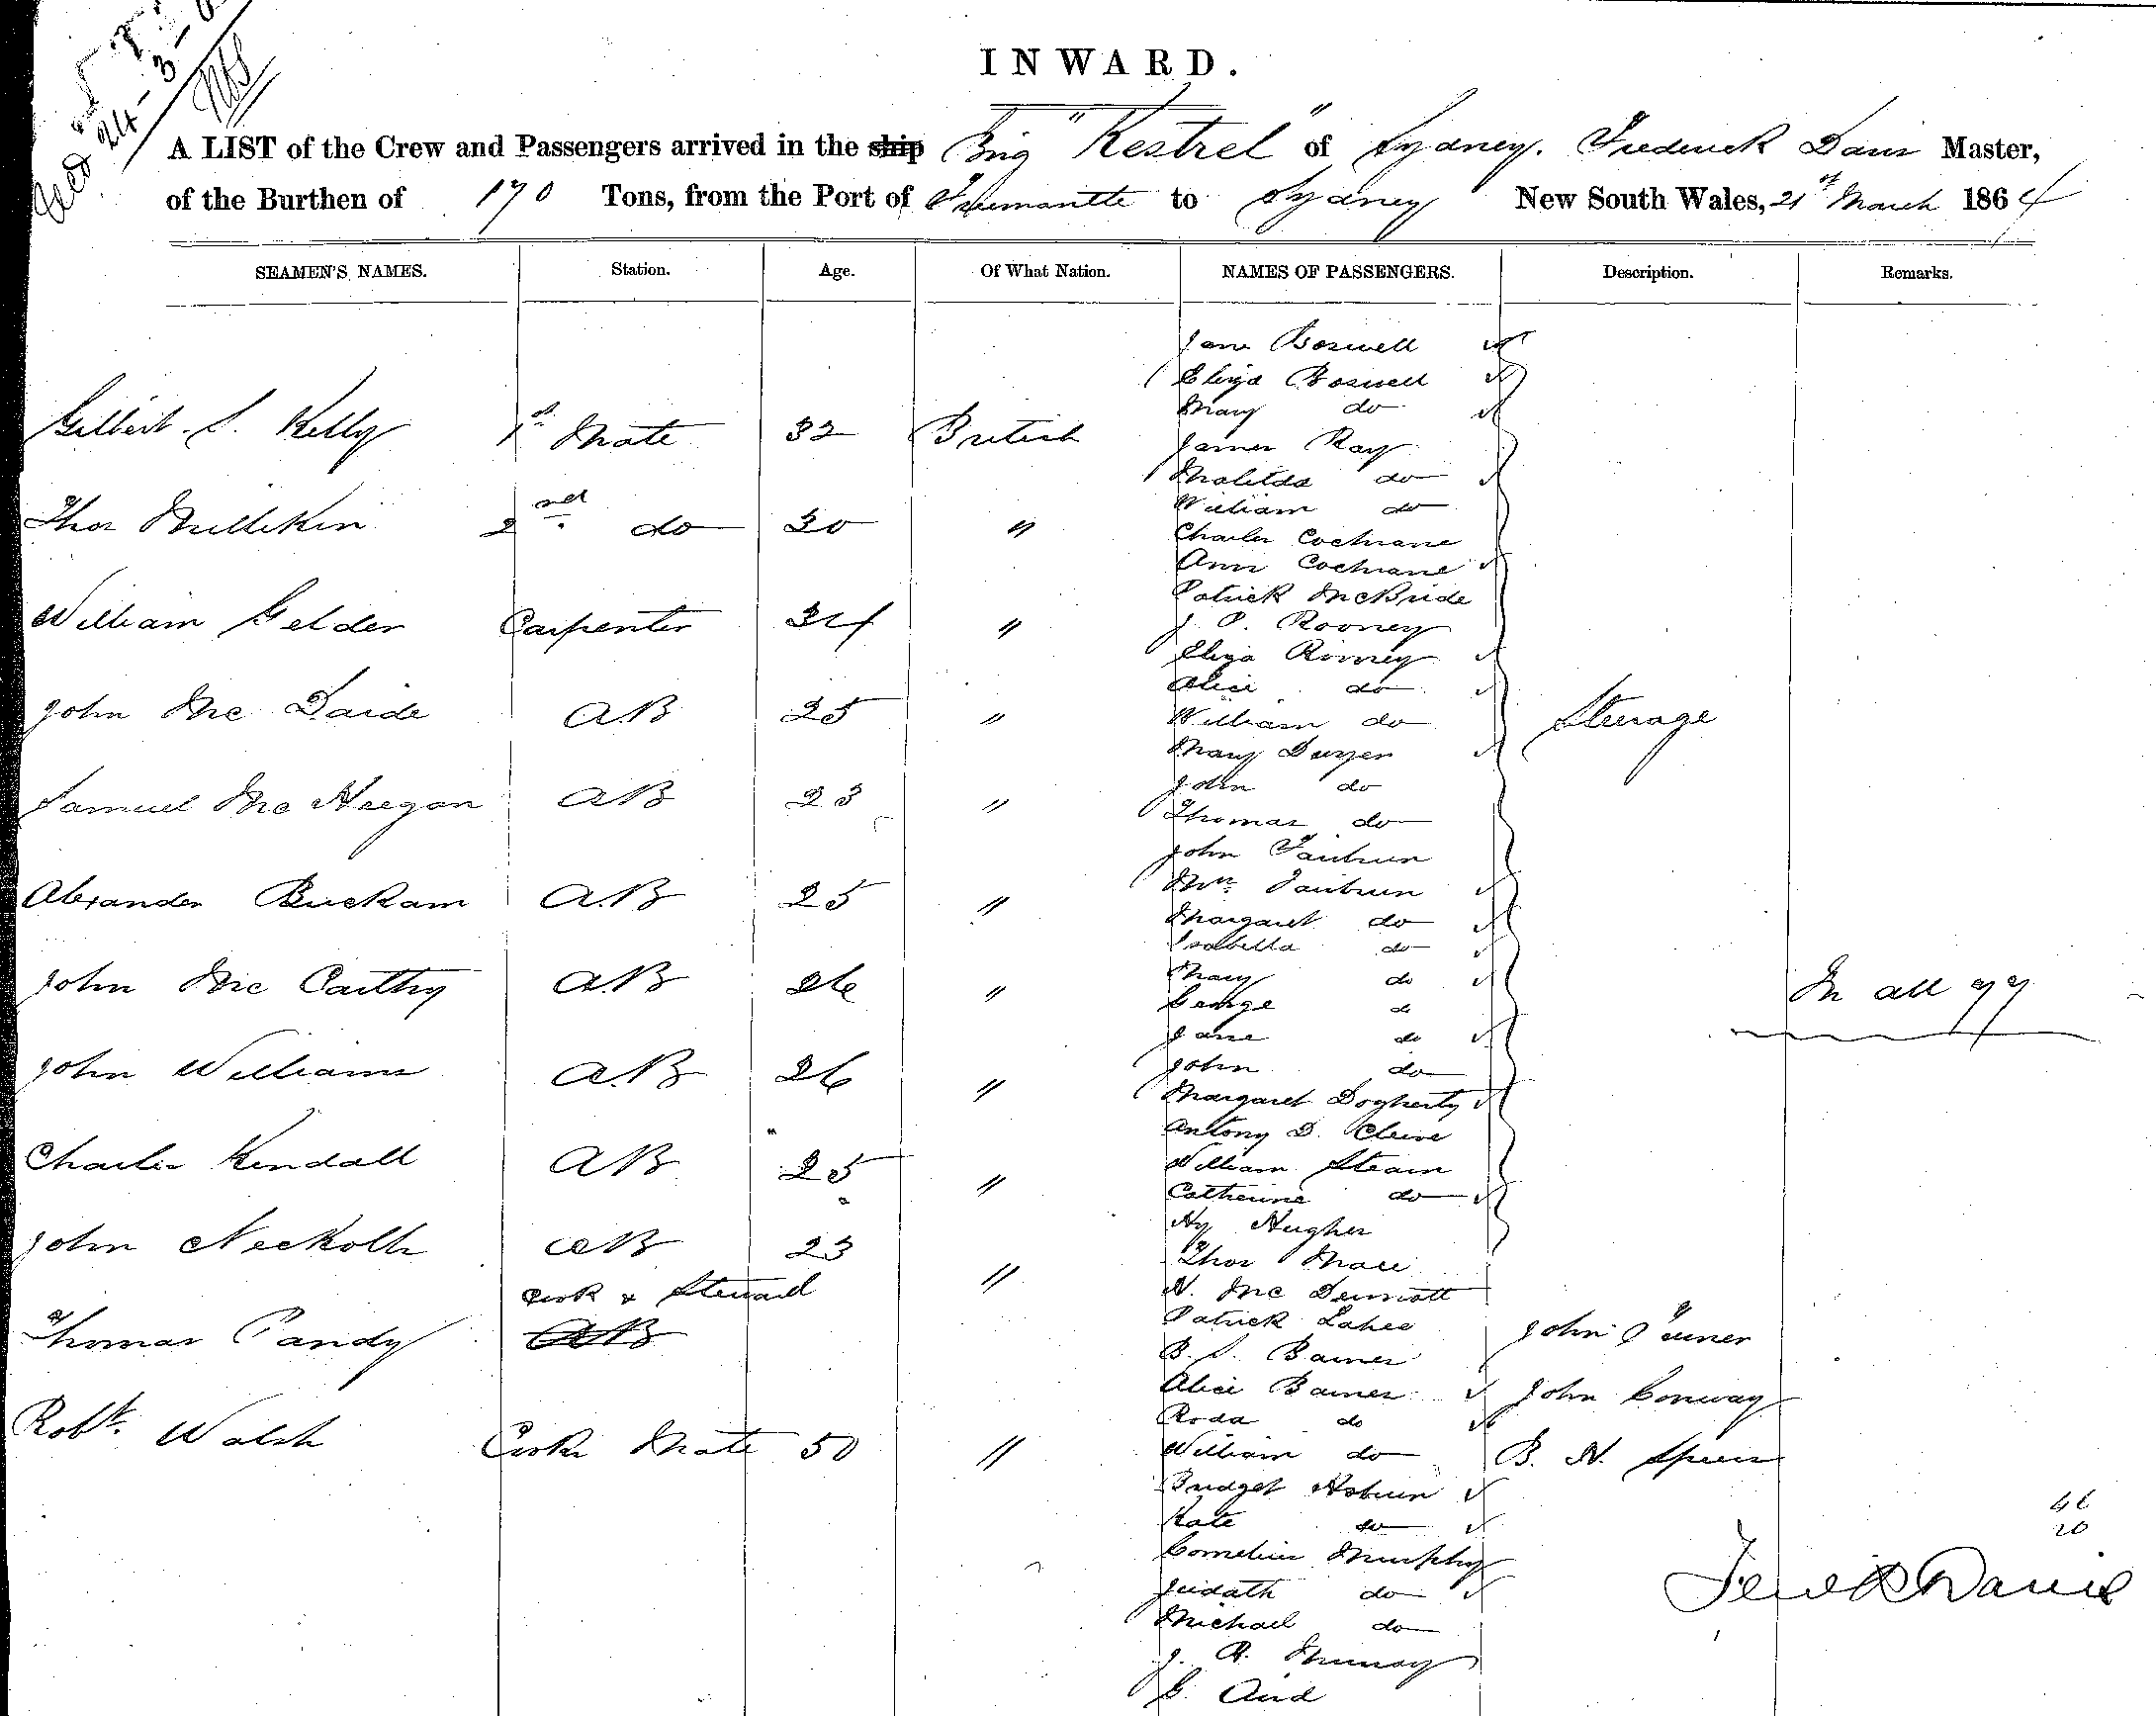 24-3-6
INWARD.
A LIST of the Crew and Passengers arrived in the ship Brig "Kestrel" of Sydney. Frederick Davis Master,
of the Burthen of 170 Tons, from the Port of Freemantle to Sydney New South Wales, 21st March 1864
SEAMEN'S NAMES. Station. Age. Of What Nation. NAMES OF PASSENGERS. Description. Remarks.
Jane Boswell
Eliza Boswell
Mary do
Gilbert S. Kelly 1st Mate 32 British James Ray
Matilda do
Thos Millikin 2nd do 30 " William do
Charles Cochrane
Ann Cochrane
Patrick McBride
William Gelder Carpenter 34 " J. P. Rooney
Eliza Rooney
Alice do
John Mc Daide AB 25 " William do Steerage
Mary Dwyer
John do
Samuel Mc Heegan AB 23 " Thomas do
John Fairburn
Mrs Fairburn
Alexander Buckam AB 25 " Margaret do
Isabella do
John Mc Carthy AB 26 " Mary do In all 77
George do
Jane do
John Williams AB 26 " John do
Margaret Dogherty
Antony D.
Charles Kendall AB 25 " William Steain
Catherine do
Hy Hughes
John AB 23 Thos Mace
Cook & Steward " N. Mc Dermott
Thomas Pandy AB Patrick Lahee John
B. S. Barnes
Alice Barnes John Conway
Roda do
Robt. Walsh Cooks Mate 50 " William do B. N. Speer
Bridget
Kate do 46
Cornelius Murphy 20
Judath do Fredk Davis
Michael do
J. R. Murray
G. Aird